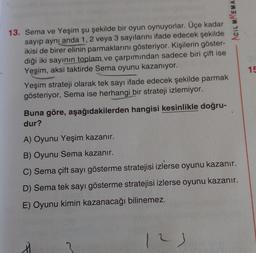 13. Sema ve Yeşim şu şekilde bir oyun oynuyorlar. Üçe kadar
sayıp aynı anda 1, 2 veya 3 sayılarını ifade edecek şekilde
ikisi de birer elinin parmaklarını gösteriyor. Kişilerin göster-
diği iki sayının toplam ve çarpımından sadece biri çift ise
Yeşim, aksi taktirde Sema oyunu kazanıyor.
Yeşim strateji olarak tek sayı ifade edecek şekilde parmak
gösteriyor, Sema ise herhangi bir strateji izlemiyor.
Buna göre, aşağıdakilerden hangisi kesinlikle doğru-
dur?
A) Oyunu Yeşim kazanır.
B) Oyunu Sema kazanır.
C) Sema çift sayı gösterme stratejisi izlerse oyunu kazanır.
D) Sema tek sayı gösterme stratejisi izlerse oyunu kazanır.
E) Oyunu kimin kazanacağı bilinemez.
15